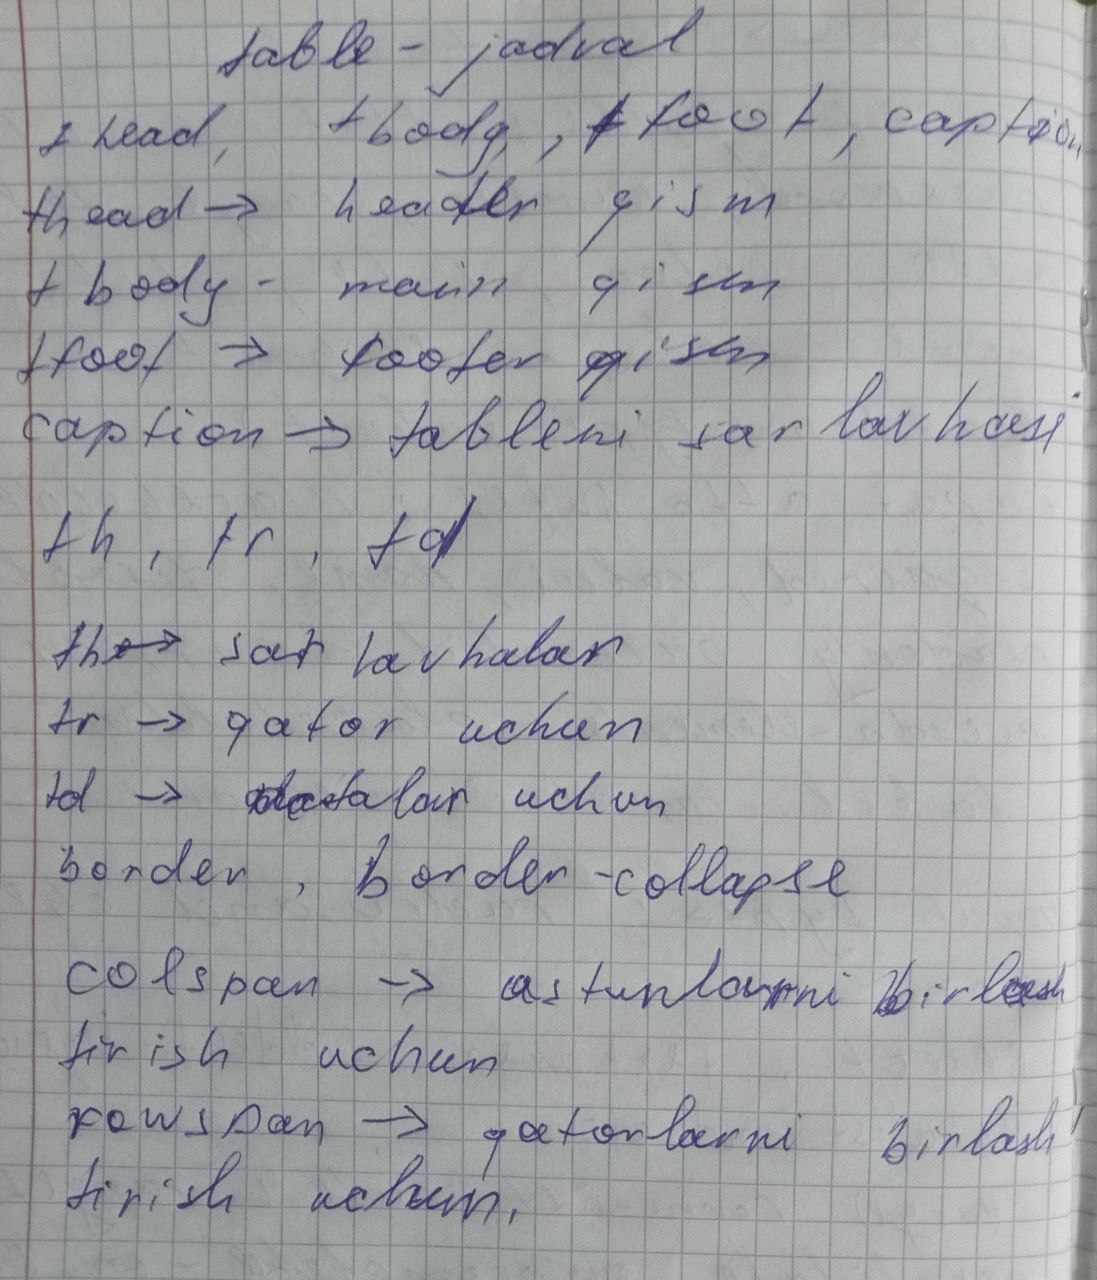 table - jadval
thead, tbody, tfoot, caption
thead → header qism
tbody - main qism
tfoot → footer qism
caption → tableni sarlavhasi
th, tr, td
th → sarlavhalar
tr → qator uchun
td → datalar uchun
border, border-collapse
colspan → ustunlarni birlash
tirish uchun
rowspan → qatorlarni birlash
tirish uchun.